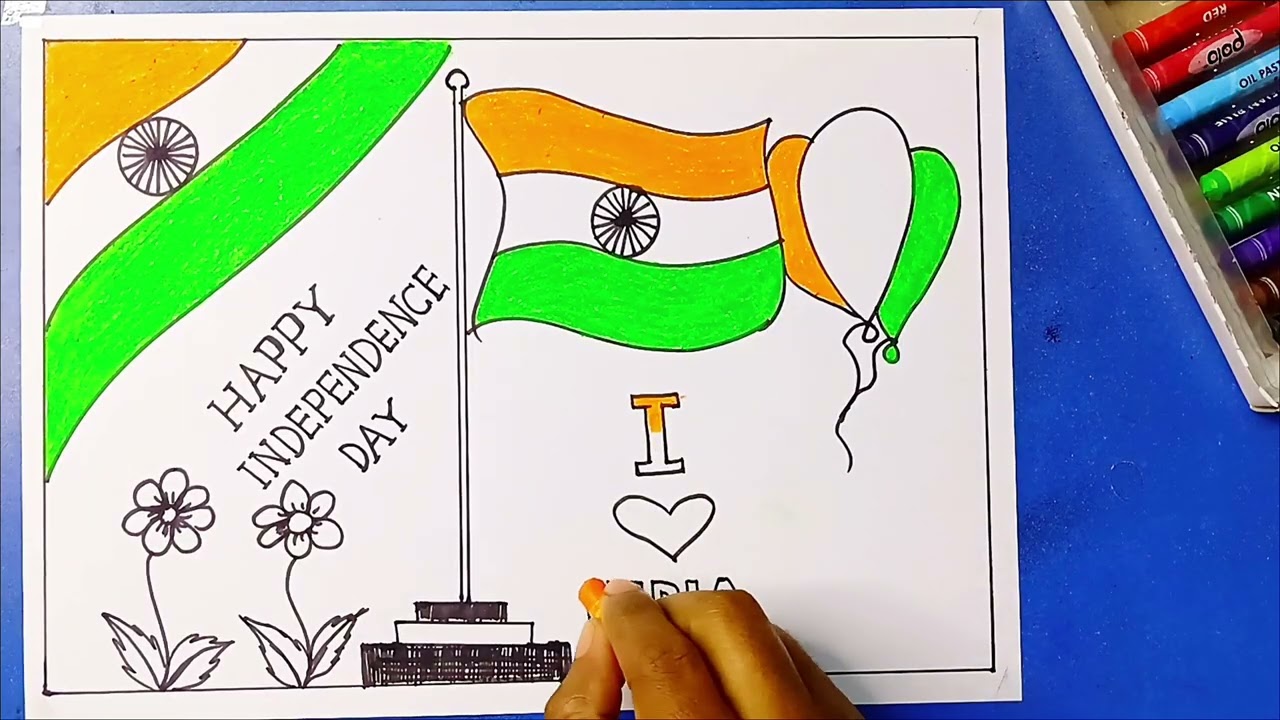 HAPPY
INDEPENDENCE
DAY
I
RED
polo
OIL PAST